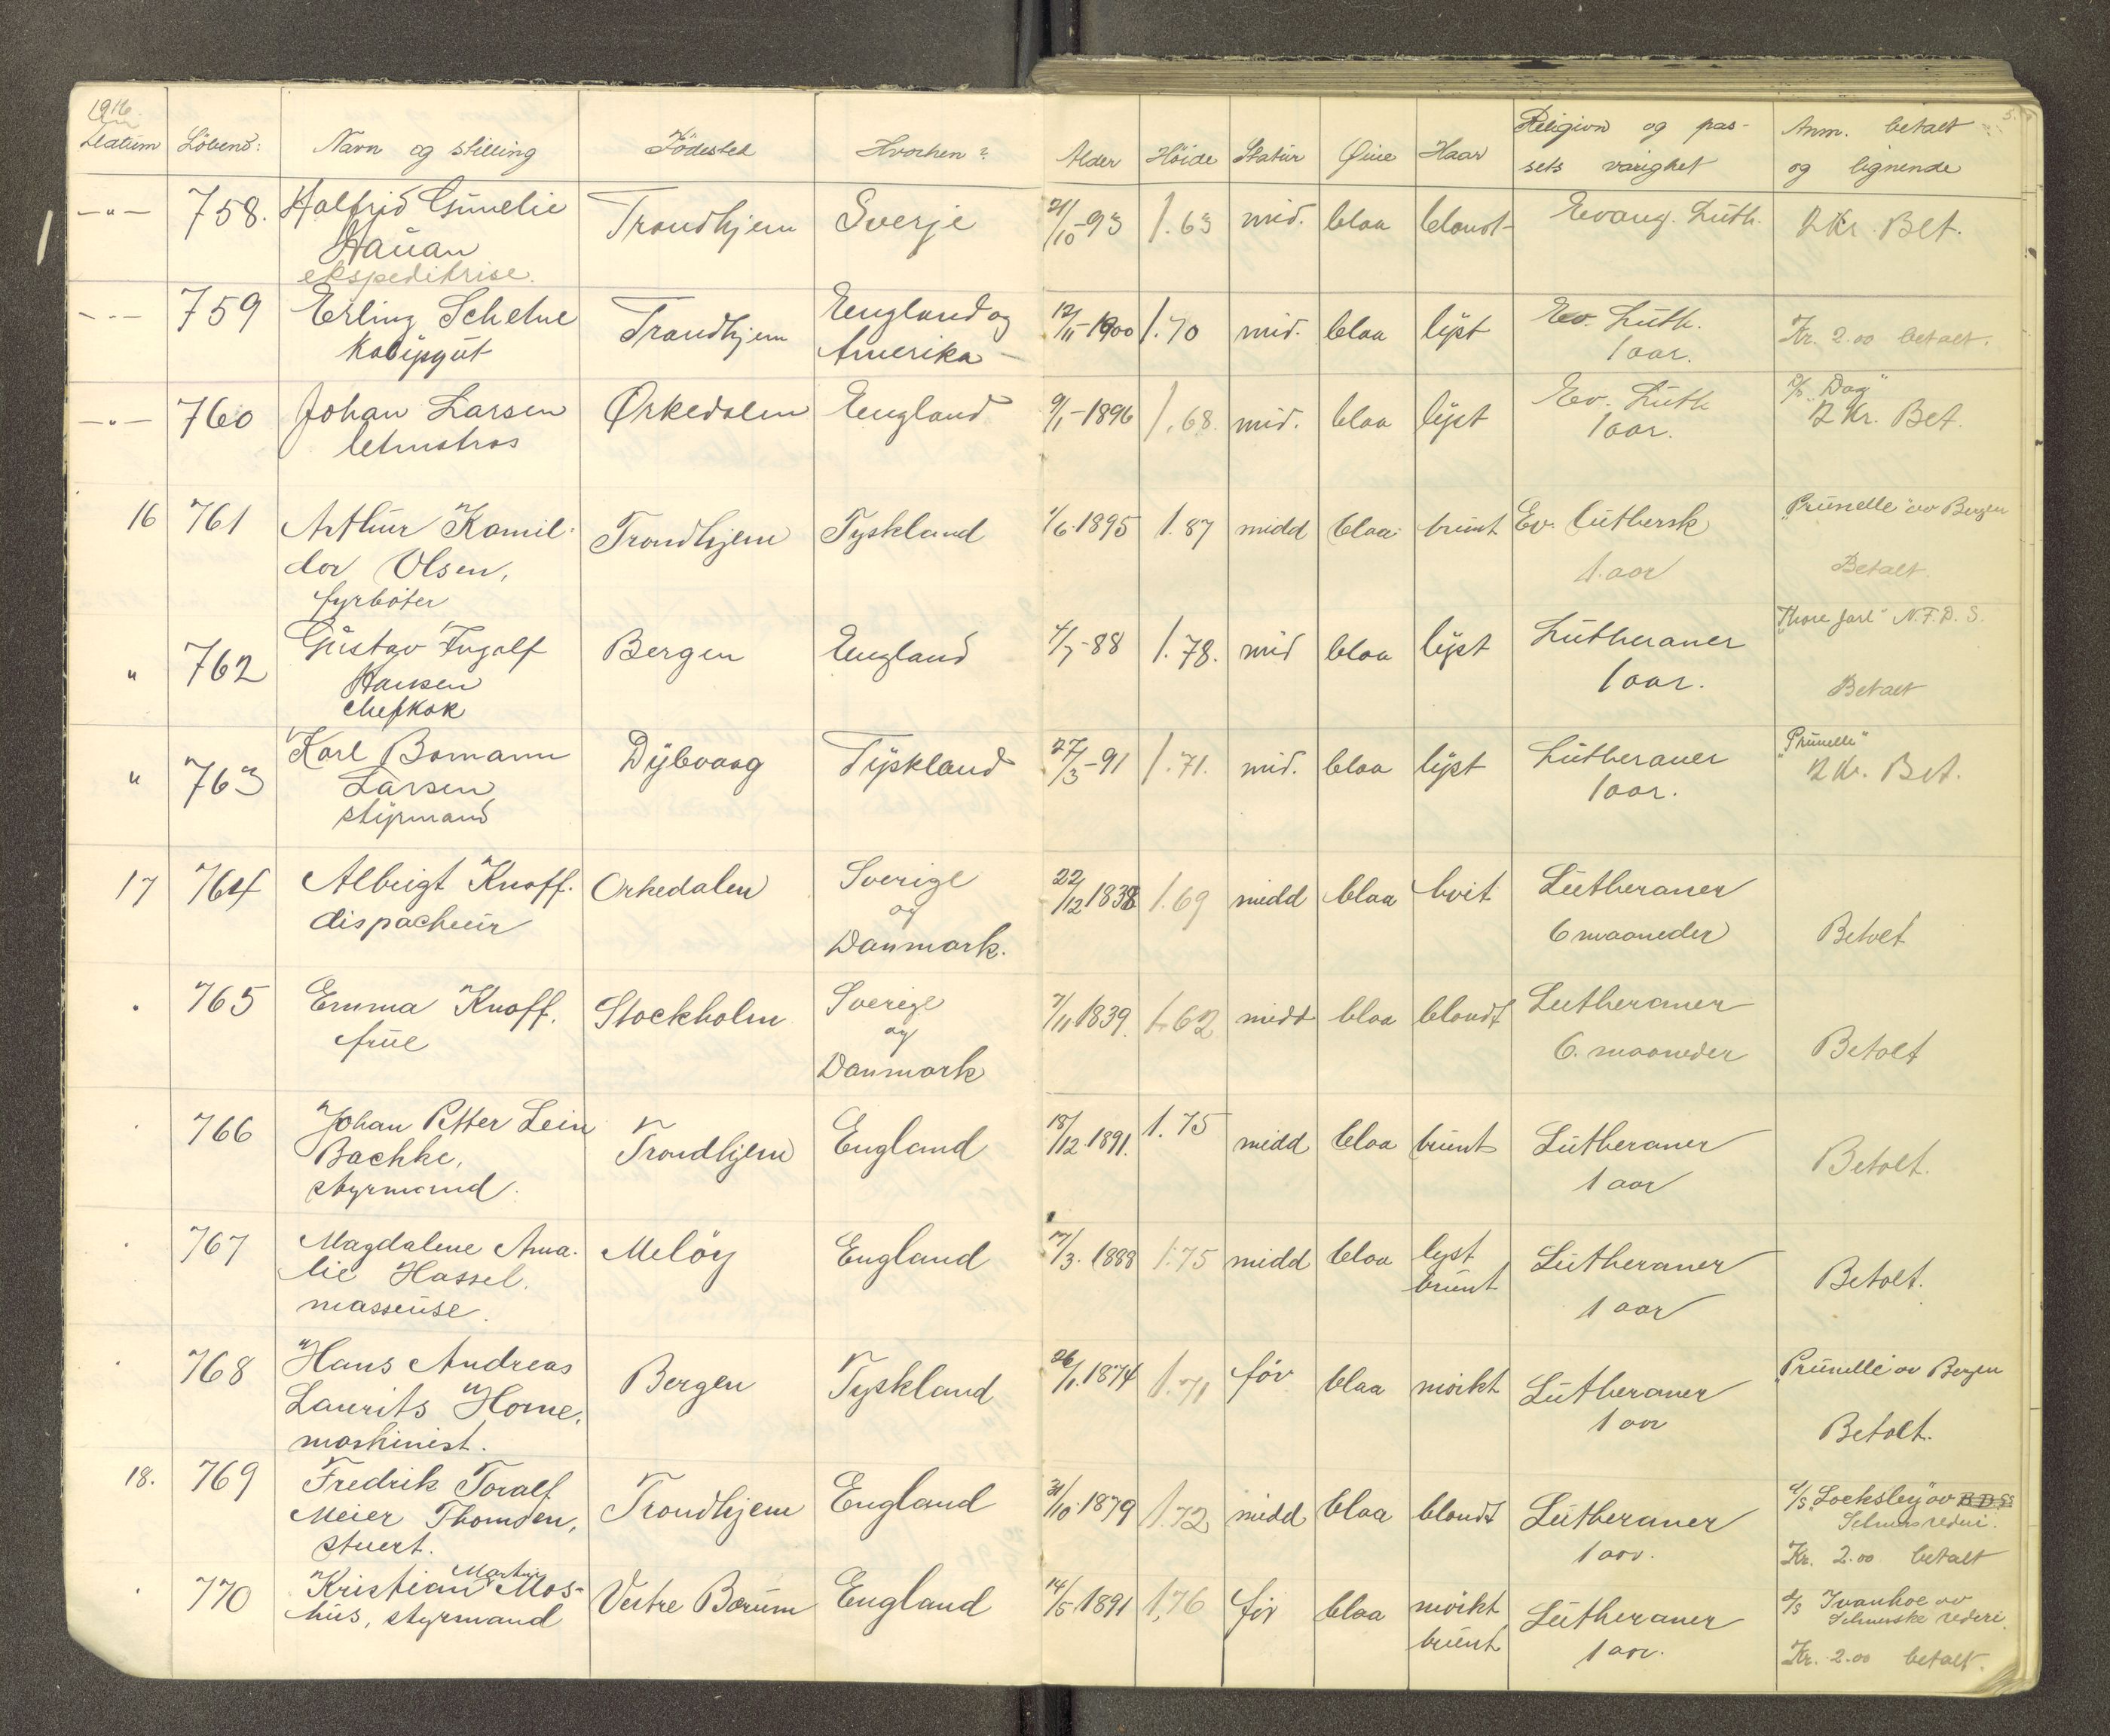 1916.
Datum Löbenº: Navn og stilling Födested Hvorhen? Alder Höide Statur Öine Haar Religion og pas- Anm. betalt
sets varighet og lignende
—"— 758. Halfrid Gunelie Trondhjem Sverje 21/10-93 1.63 mid. blaa blondt Evang. Luth. 2 Kr. Bet.
Hauan
ekspeditrise.
—"— 759 Erling Schelve Trondhjem England og 12/11-1900 1.70 mid. blaa lyst Ev. Luth. Kr. 2.00 betalt.
Kabysgut Amerika 1 aar.
—"— 760 Johan Larsen Ørkedalen England 9/1-1896 1.68. mid. blaa lyst Ev. Luth D/S "Dag"
letmatros 1 aar. 2 Kr. Bet.
16 761 Arthur Kamil- Trondhjem Tyskland 1/6.1895 1.87 midd blaa brunt Ev. luthersk "Prunelle" av Bergen
dor Olsen, 1. aar Betalt.
fyrböter
" 762 Gustav Ingolf Bergen England 4/7-88 1.78. mid blaa lyst Lutheraner "Thore Jarl" N.F.D.S.
Hansen 1 aar. Betalt
chefkok
" 763 Karl Bomann Dybvaag Tyskland 27/3-91 1.71. mid. blaa lyst Lutheraner "Prunelle"
Larsen 1 aar. 2 Kr. Bet.
styrmand
17 764 Albrigt Knoff. Orkedalen Sverige 22/12 1838 1.69 midd blaa hvit Lutheraner
dispacheur og
Danmark. 6 maaneder Betalt
. 765 Emma Knoff. Stockholm Sverige 7/11 1839. 1.62 midd blaa blondt Lutheraner
frue og
Danmark 6. maaneder Betalt
. 766 Johan Petter Lein Trondhjem England 18/12.1891. 1.75 midd blaa brunt Lutheraner Betalt.
Bachke,
styrmand. 1 aar
. 767 Magdalene Ama- Melöy England 7/3.1888 1.75 midd blaa lyst Lutheraner Betalt.
lie Hassel. brunt
masseuse. 1 aar
. 768 Hans Andreas Bergen Tyskland 26/1.1874 1.71 för blaa mörkt Lutheraner "Prunelle av Bergen
Laurits Horne, 1 aar
maskinist. Betalt.
18. 769 Fredrik Toralf Trondhjem England 31/10.1879 1.72 midd blaa blondt Lutheraner D/S "Locksley" av B.D.S.
Meier Thomsen, Selmers rederi.
stuert. 1 aar. Kr. 2.00 betalt
. 770 Kristian Martin Mos- Vestre Bærum England 14/5 1891 1,76 för blaa mörkt Lutheraner D/S Ivanhoe av
hus, styrmand brunt Selmerske rederi.
1 aar. Kr. 2.00 betalt.